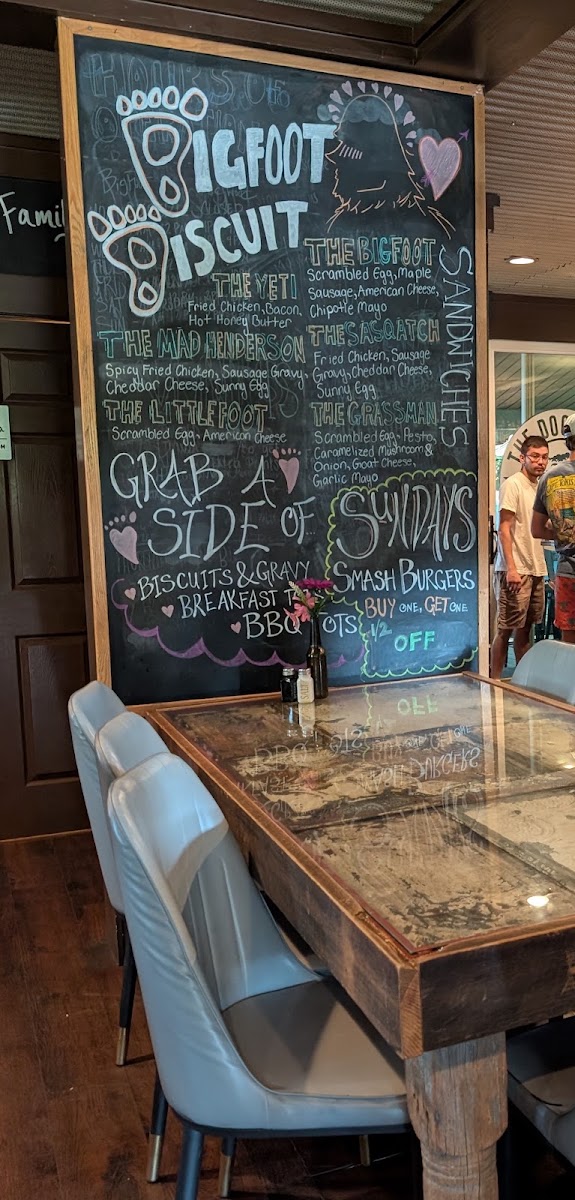 Family
BIGFOOT
BISCUIT
SANDWICHES
THE YETI
Fried Chicken, Bacon,
Hot Honey Butter
THE MAD HENDERSON
Spicy Fried Chicken, Sausage Gravy,
Cheddar Cheese, Sunny Egg
THE LITTLEFOOT
Scrambled Egg, American Cheese
THE BIGFOOT
Scrambled Egg, Maple
Sausage, American Cheese,
Chipotle Mayo
THE SASQUATCH
Fried Chicken, Sausage
Gravy, Cheddar Cheese,
Sunny Egg
THE GRASSMAN
Scrambled Egg, Pesto,
Caramelized Mushroom &
Onion, Goat Cheese,
Garlic Mayo
GRAB A
SIDE OF...
BISCUITS & GRAVY
BREAKFAST
BBQ
SUNDAYS
SMASH BURGERS
BUY ONE, GET ONE
1/2 OFF
THE